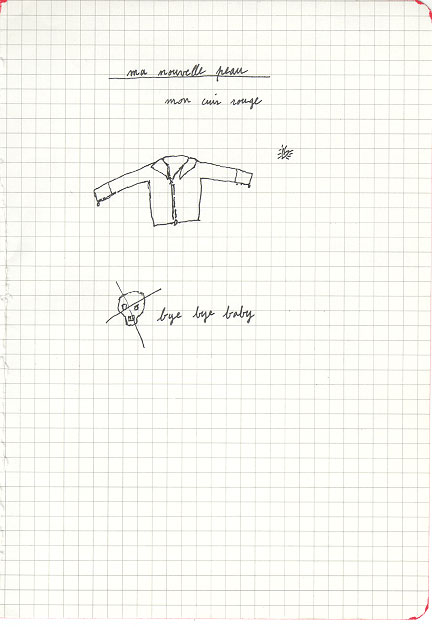 ma nouvelle peau
mon cuir rouge
bye bye baby